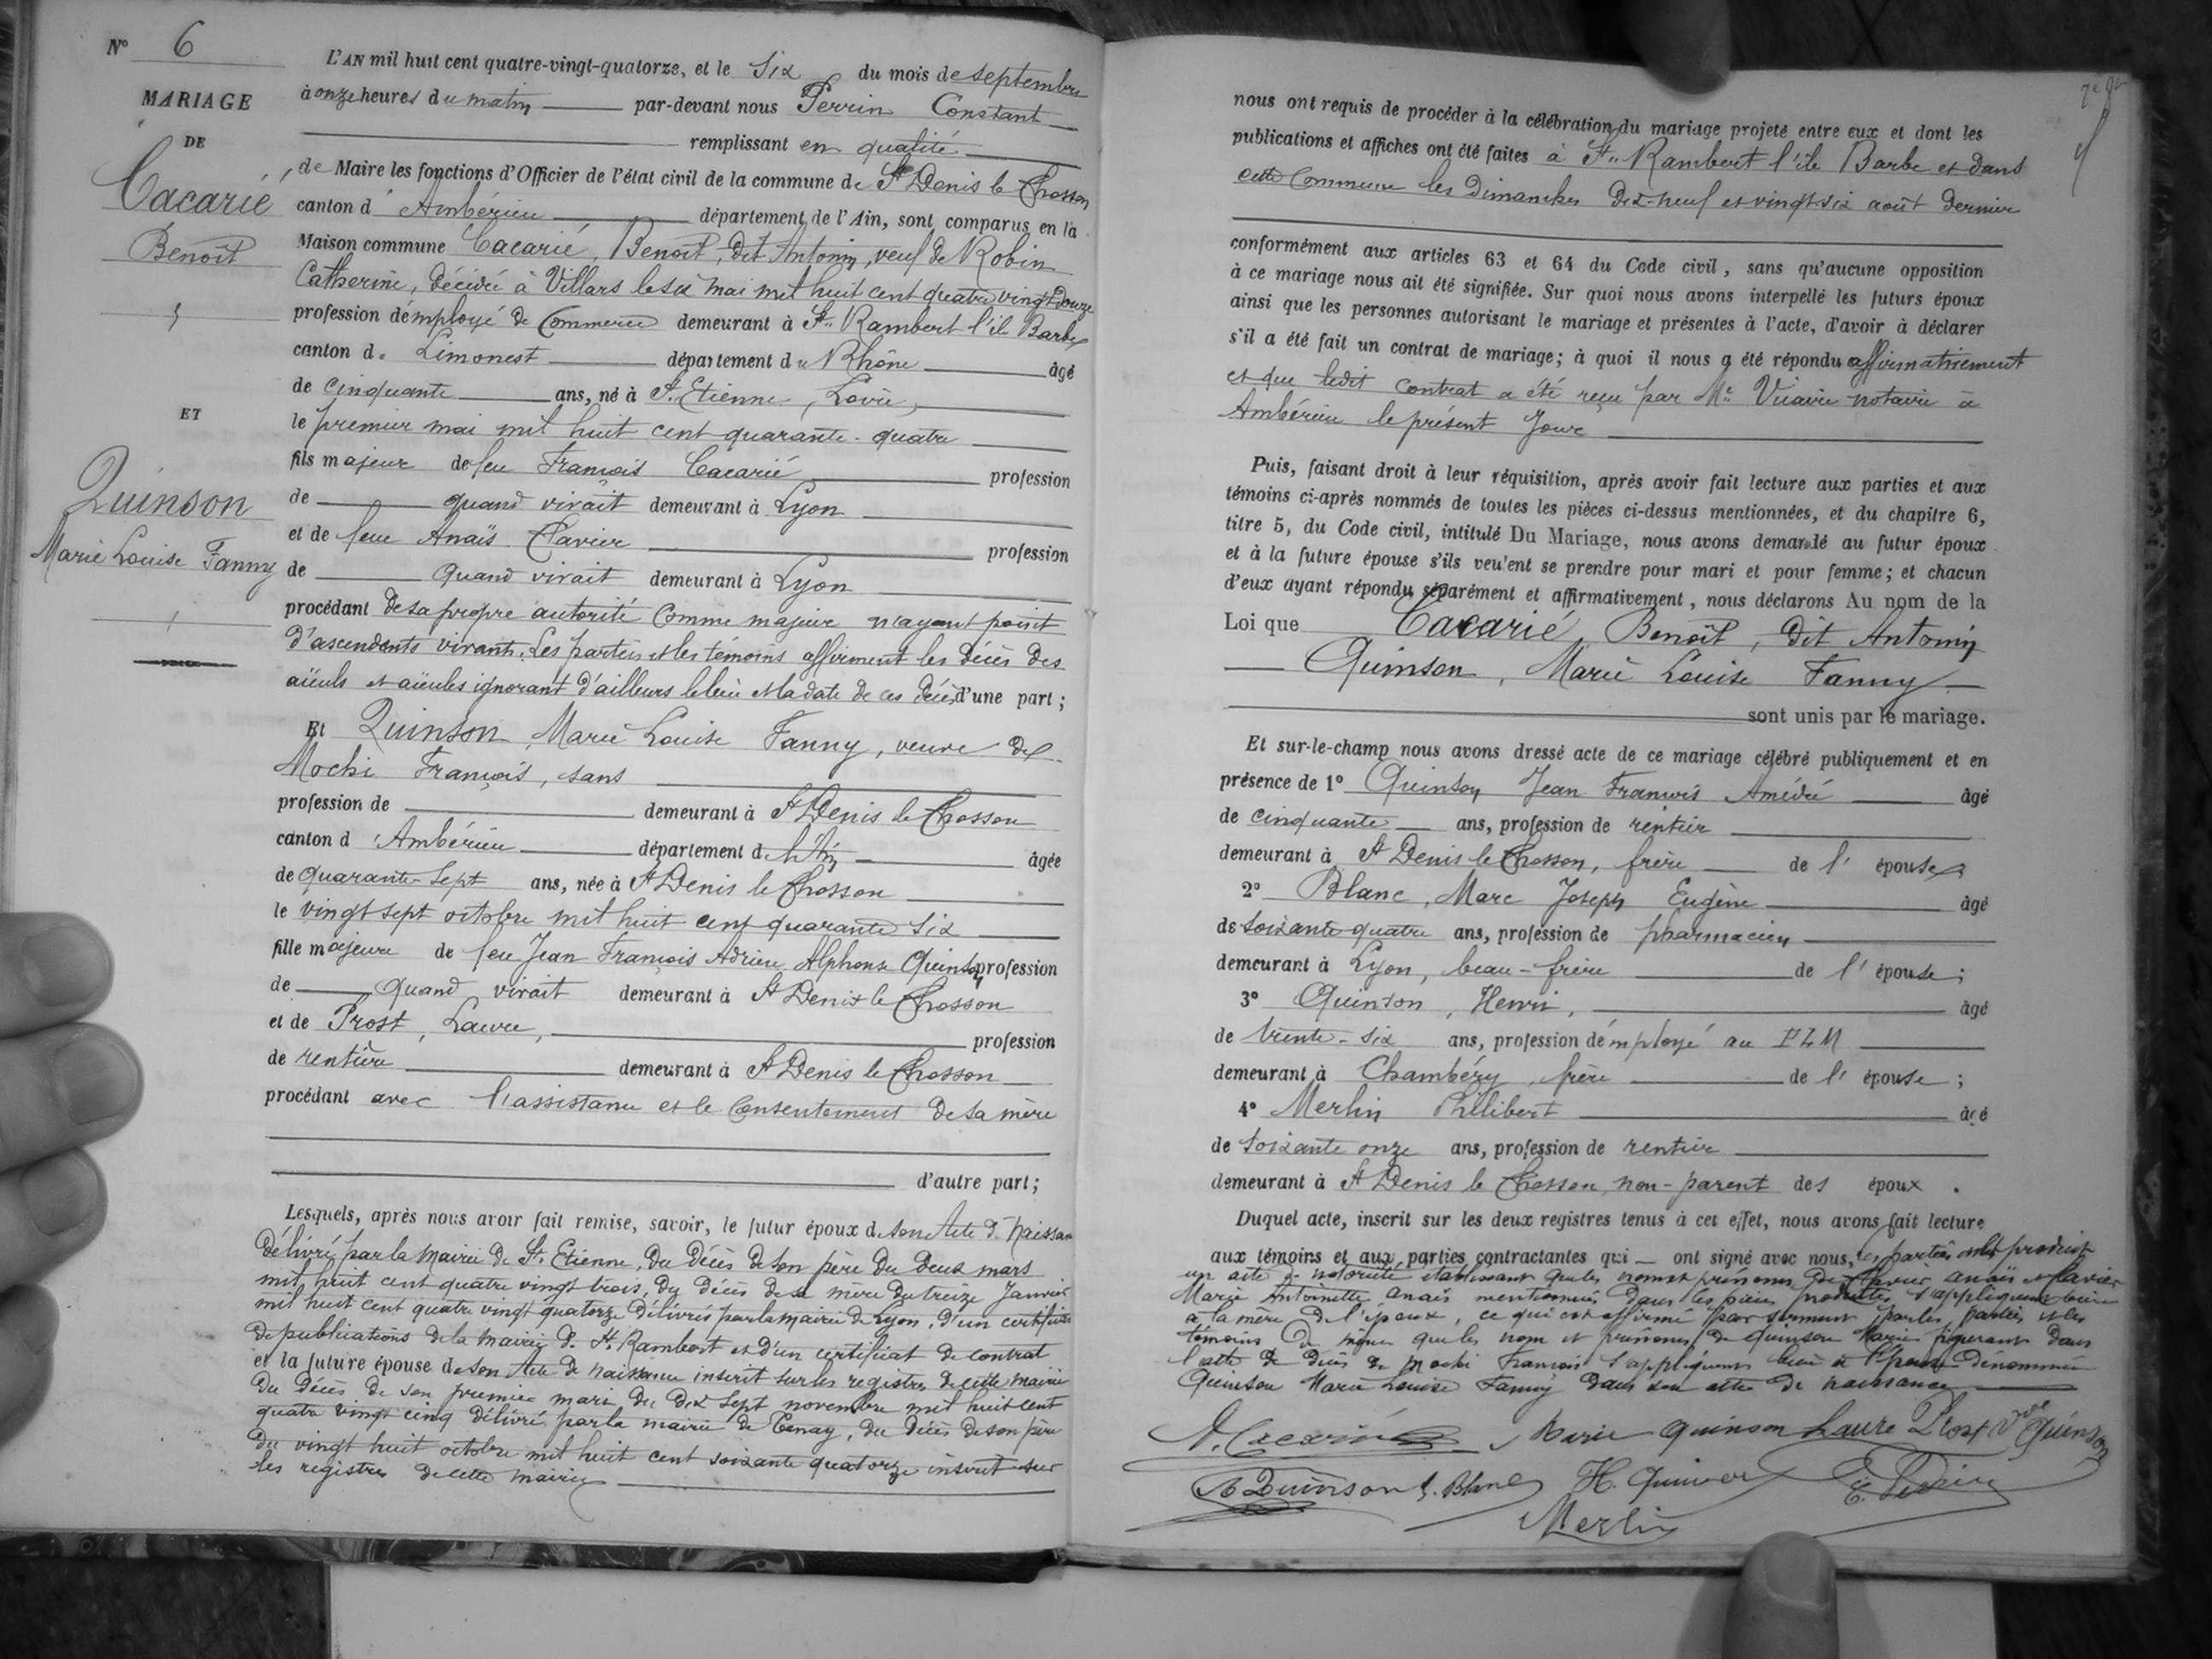 N° 6
MARIAGE
DE
Cacarié
Benoît
ET
Quinson
Marie Louise Fanny
L'AN mil huit cent quatre-vingt-quatorze, et le Six du mois de septembre
à onze heures du matin par-devant nous Perrin Constant
remplissant en qualité
de Maire les fonctions d'Officier de l'état civil de la commune de St Denis le Chosson
canton d'Ambérieu département de l'Ain, sont comparus en la
Maison commune Cacarié, Benoît, dit Antonin, veuf de Robin
Catherine, décédée à Villars le six mai mil huit cent quatre vingt douze
profession d'employé de Commerce demeurant à St Rambert l'île Barbe
canton de Limonest département du Rhône âgé
de cinquante ans, né à St Etienne, Loire,
le premier mai mil huit cent quarante-quatre
fils majeur de feu François Cacarié profession
de quand vivait demeurant à Lyon
et de feue Anaïs Clavier profession
de quand vivait demeurant à Lyon
procédant de sa propre autorité comme majeur n'ayant point
d'ascendants vivants. Les parties et les témoins affirment les décès des
aïeuls et aïeules ignorant d'ailleurs le lieu et la date de ces décès d'une part ;
Et Quinson, Marie Louise Fanny, veuve de
Mochi François, sans
profession de demeurant à St Denis le Chosson
canton d'Ambérieu département de l'Ain âgée
de quarante-sept ans, née à St Denis le Chosson
le vingt sept octobre mil huit cent quarante six
fille majeure de feu Jean François Adrien Alphonse Quinson profession
de quand vivait demeurant à St Denis le Chosson
et de Prost, Laure, profession
de rentière demeurant à St Denis le Chosson
procédant avec l'assistance et le consentement de sa mère
d'autre part ;
Lesquels, après nous avoir fait remise, savoir, le futur époux de son Acte de naissance
délivré par la mairie de St Etienne, du décès de son père du deux mars
mil huit cent quatre vingt trois, du décès de sa mère du treize Janvier
mil huit cent quatre vingt quatorze délivrés par la mairie de Lyon, d'un certificat
de publications de la mairie de St Rambert et d'un certificat de contrat
et la future épouse de son Acte de naissance inscrit sur les registres de cette mairie
du décès de son premier mari du dix sept novembre mil huit cent
quatre vingt cinq délivré par la mairie de Tenay, du décès de son père
du vingt huit octobre mil huit cent soixante quatorze inscrit sur
les registres de cette mairie
nous ont requis de procéder à la célébration du mariage projeté entre eux et dont les
publications et affiches ont été faites à St Rambert l'île Barbe et dans
cette Commune les Dimanches Dix-neuf et vingt-six août dernier
conformément aux articles 63 et 64 du Code civil, sans qu'aucune opposition
à ce mariage nous ait été signifiée. Sur quoi nous avons interpellé les futurs époux
ainsi que les personnes autorisant le mariage et présentes à l'acte, d'avoir à déclarer
s'il a été fait un contrat de mariage ; à quoi il nous a été répondu affirmativement
et que ledit contrat a été reçu par Me Vicaire notaire à
Ambérieu le présent Jour
Puis, faisant droit à leur réquisition, après avoir fait lecture aux parties et aux
témoins ci-après nommés de toutes les pièces ci-dessus mentionnées, et du chapitre 6,
titre 5, du Code civil, intitulé Du Mariage, nous avons demandé au futur époux
et à la future épouse s'ils veulent se prendre pour mari et pour femme ; et chacun
d'eux ayant répondu séparément et affirmativement, nous déclarons Au nom de la
Loi que Cacarié, Benoît, dit Antonin
Quinson, Marie Louise Fanny
sont unis par le mariage.
Et sur-le-champ nous avons dressé acte de ce mariage célébré publiquement et en
présence de 1° Quinson Jean François Amédée âgé
de cinquante ans, profession de rentier
demeurant à St Denis le Chosson, frère de l'épouse ;
2° Blanc, Marc Joseph Eugène âgé
de soixante-quatre ans, profession de pharmacien
demeurant à Lyon, beau-frère de l'épouse ;
3° Quinson, Henri, âgé
de trente-six ans, profession d'employé au PLM
demeurant à Chambéry, frère de l'épouse ;
4° Merlin Philibert âgé
de soixante onze ans, profession de rentier
demeurant à St Denis le Chosson non-parent des époux.
Duquel acte, inscrit sur les deux registres tenus à cet effet, nous avons fait lecture
aux témoins et aux parties contractantes qui ont signé avec nous, les parties ont produit
un acte de notoriété établissant que les noms et prénoms de Clavier Anaïs et Clavier
Marie Antoinette Anaïs mentionnés dans les pièces produites s'appliquent bien
à la mère de l'époux, ce qui est affirmé par serment par les parties et les
témoins De même que les nom et prénoms de Quinson Marie figurant dans
l'acte de décès de Mochi François s'appliquent bien à l'épouse dénommée
Quinson Marie Louise Fanny dans son acte de naissance
A. Cacarié Marie Quinson Laure Prost Vve Quinson
A Quinson E. Blanc H. Quinson C. Perrin
Merlin